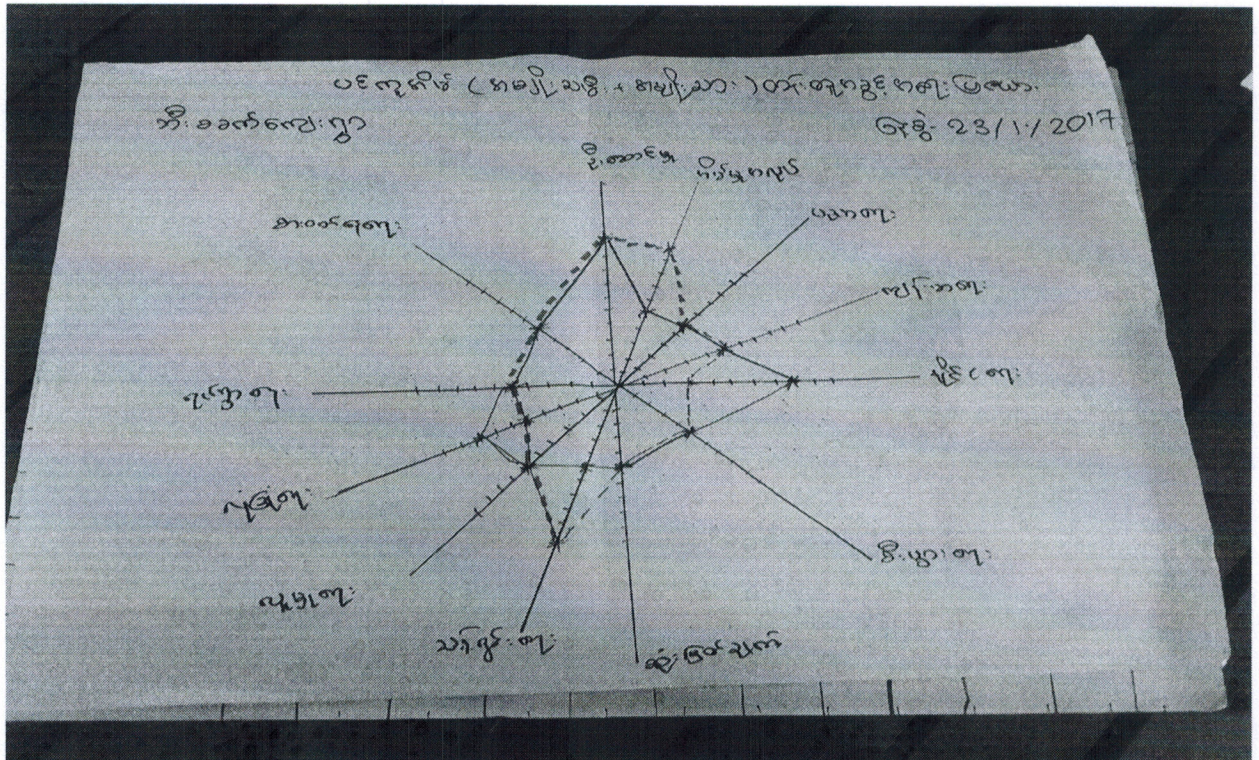 ပင့်ကူအိမ် (အမျိုးသမီး + အမျိုးသား) တန်းတူအခွင့်အရေး ပြဇယား
ဘီးခေက်ကျေးရွာ
နေ့စွဲ- 23/1/2017
ဦးဆောင်မှု
အိမ်မှုအလုပ်
ပညာရေး
ကျန်းမာရေး
ပိုင်ဆိုင်ရေး
စီးပွားရေး
ဆုံးဖြတ်ချက်
သန့်ရှင်းရေး
လူမှုရေး
လုံခြုံရေး
ရပ်ရွာရေး
စားဝတ်နေရေး